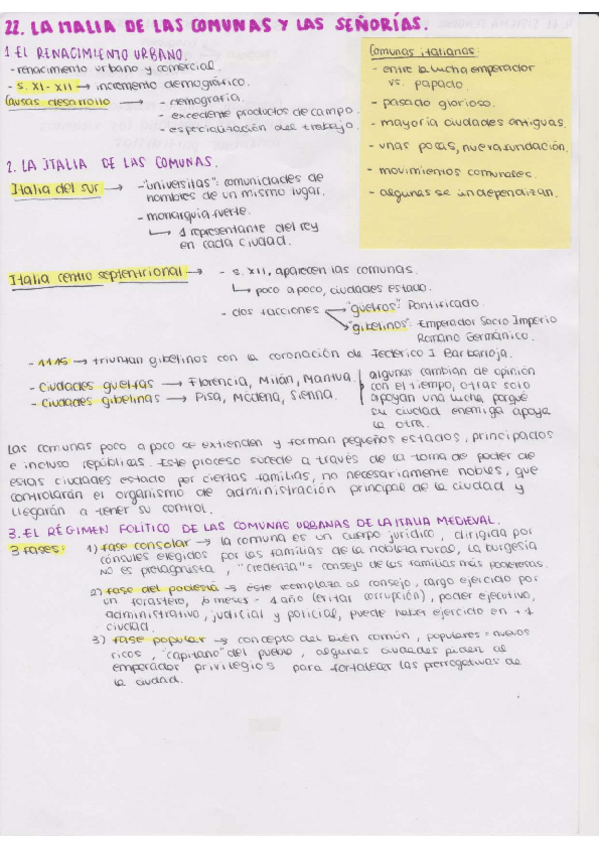 22. LA ITALIA DE LAS COMUNAS Y LAS SEÑORÍAS.
1 EL RENACIMIENTO URBANO.
- renacimiento urbano y comercial.
- s. XI - XII → incremento demográfico.
Causas desarrollo → - demografía.
- excedente productos de campo.
- especialización del trabajo.
Comunas italianas:
- entre la lucha emperador
vs. papado.
- pasado glorioso.
- mayoría ciudades antiguas.
- unas pocas, nueva fundación.
- movimientos comunales.
- algunas se independizan.
2. LA ITALIA DE LAS COMUNAS.
Italia del sur → - "universitas": comunidades de
hombres de un mismo lugar.
- monarquía fuerte.
↳ 1 representante del rey
en cada ciudad.
Italia centro septentrional → - s. XII, aparecen las comunas.
↳ poco a poco, ciudades estado.
- dos facciones → "güelfos": Pontificado.
"gibelinos": Emperador Sacro Imperio
Romano Germánico.
- 1115 → triunfan gibelinos con la coronación de Federico I Barbarroja.
- Ciudades guelfas → Florencia, Milán, Mantua.
- Ciudades gibelinas → Pisa, Módena, Sienna.
algunas cambian de opinión
con el tiempo, otras solo
apoyan una lucha porque
su ciudad enemiga apoya
la otra.
Las comunas poco a poco se extienden y forman pequeños estados, principados
e incluso repúblicas. Este proceso sucede a través de la toma de poder de
estas ciudades estado por ciertas familias, no necesariamente nobles, que
controlarán el organismo de administración principal de la ciudad y
llegarán a tener su control.
3. EL RÉGIMEN POLÍTICO DE LAS COMUNAS URBANAS DE LA ITALIA MEDIEVAL.
3 fases: 1) fase consolar → la comuna es un cuerpo jurídico, dirigida por
cónsules elegidos por las familias de la nobleza rural, la burgesía
no es protagonista, "credenza" = consejo de las familias más poderosas.
2) fase del podestà → este reemplaza al consejo, cargo ejercido por
un forastero, 6 meses - 1 año (evitar corrupción), poder ejecutivo,
administrativo, judicial y policial, puede haber ejercido en + 1
ciudad.
3) fase popular → concepto del bien común, populares = nuevos
ricos, "capitano" del pueblo, algunas ciudades piden al
emperador privilegios para fortalecer las prerrogativas de
la ciudad.